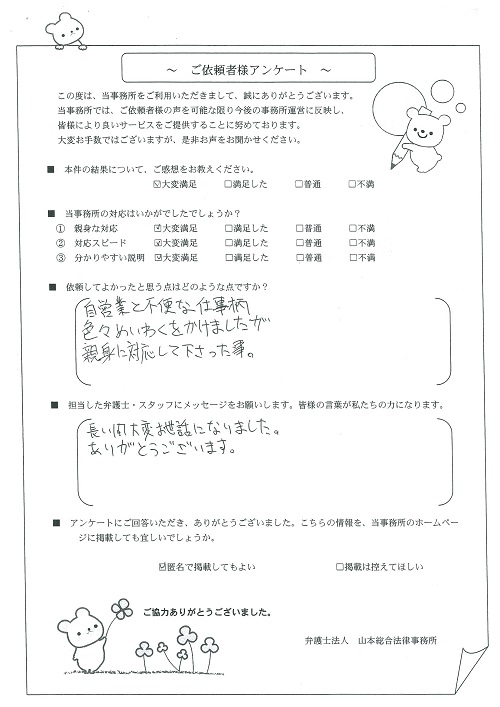 ～ ご依頼者様アンケート ～
この度は、当事務所をご利用いただきまして、誠にありがとうございます。
当事務所では、ご依頼者様の声を可能な限り今後の事務所運営に反映し、
皆様により良いサービスをご提供することに努めております。
大変お手数ではございますが、是非お声をお聞かせください。
■ 本件の結果について、ご感想をお教えください。
☑大変満足 □満足した □普通 □不満
■ 当事務所の対応はいかがでしたでしょうか？
① 親身な対応 ☑大変満足 □満足した □普通 □不満
② 対応スピード ☑大変満足 □満足した □普通 □不満
③ 分かりやすい説明 ☑大変満足 □満足した □普通 □不満
■ 依頼してよかったと思う点はどのような点ですか？
自営業と不便な仕事柄
色々めいわくをかけましたが
親身に対応して下さった事。
■ 担当した弁護士・スタッフにメッセージをお願いします。皆様の言葉が私たちの力になります。
長い間大変お世話になりました。
ありがとうございます。
■ アンケートにご回答いただき、ありがとうございました。こちらの情報を、当事務所のホームペー
ジに掲載しても宜しいでしょうか。
☑匿名で掲載してもよい □掲載は控えてほしい
ご協力ありがとうございました。
弁護士法人 山本総合法律事務所